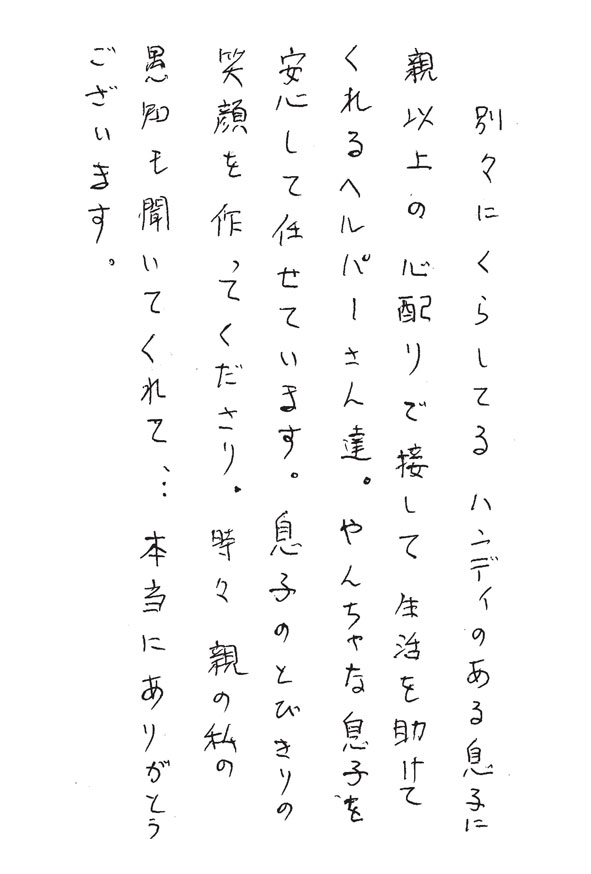 別々にくらしてるハンディのある息子に
親以上の心配りで接して生活を助けて
くれるヘルパーさん達。やんちゃな息子を
安心して任せています。息子のとびきりの
笑顔を作ってくださり。時々親の私の
愚知も聞いてくれて、…本当にありがとう
ございます。